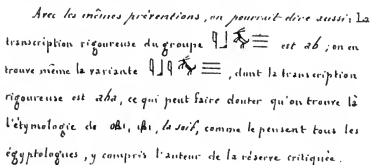 Avec les mêmes préventions, on pourrait dire aussi: La
transcription rigoureuse du groupe est ab; on en
trouve même la variante , dont la transcription
rigoureuse est aba, ce qui peut faire douter qu'on trouve là
l'étymologie de la soif, comme le pensent tous les
égyptologues, y compris l'auteur de la réserve critiquée.